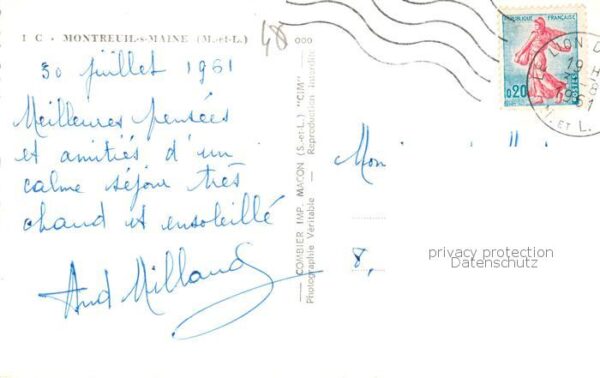 1 C - MONTREUIL-s-MAINE (M.-et-L.)
48
30 juillet 1961
Meilleures pensées
et amitiés d'un
calme séjour très
chaud et ensoleillé
COMBIER IMP. MACON (S.-et-L.) "CIM"
Photographie Véritable - Reproduction Interdite
REPUBLIQUE FRANÇAISE
0,20
LE LION D
19 H
1961
M. et L.
8,
privacy protection
Datenschutz